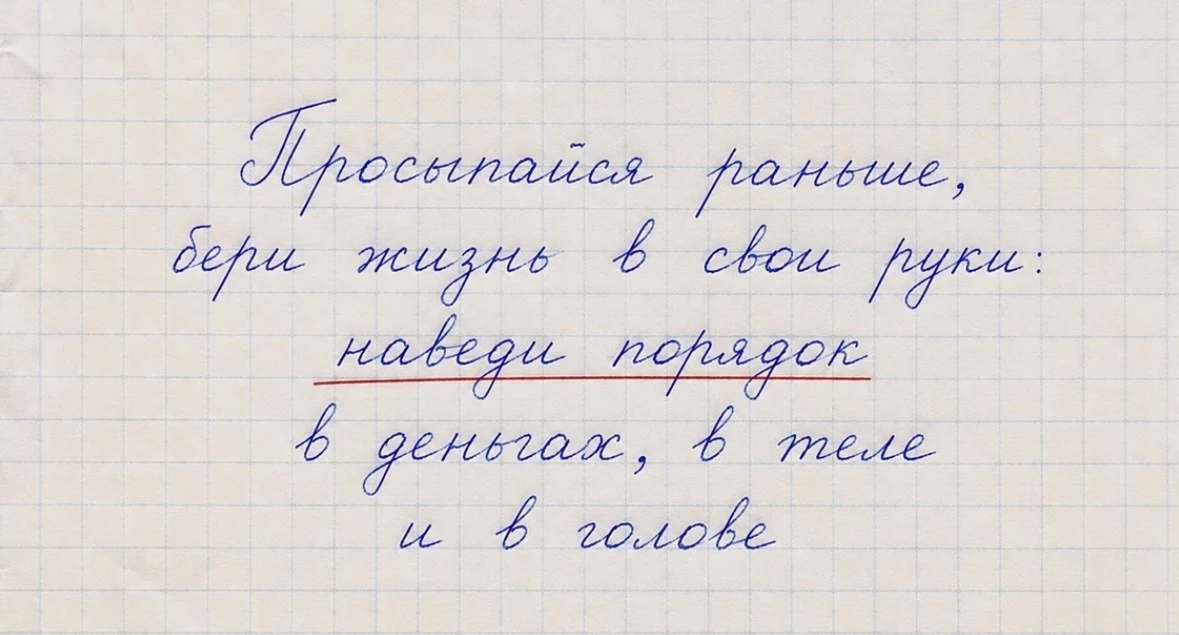 Просыпайся раньше,
бери жизнь в свои руки:
наведи порядок
в деньгах, в теле
и в голове